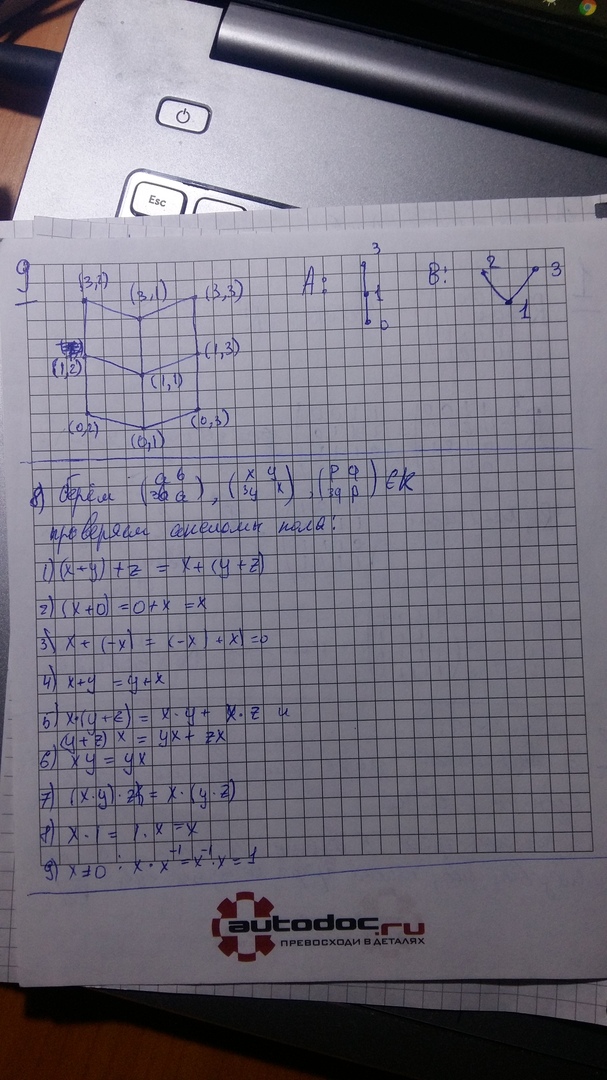 Esc
9
(3,2) (3,1) (3,3)
(1,2) (1,1) (1,3)
(0,2) (0,1) (0,3)
A:
3
1
0
B:
2 3
1
8) берём (a b 3b a), (x y 3y x), (p q 3q p) ∈ K
проверяем аксиомы поля:
1) (x+y)+z = x+(y+z)
2) (x+0) = 0+x = x
3) x+(-x) = (-x)+x) = 0
4) x+y = y+x
5) x•(y+z) = x·y + x·z и
(y+z) x = yx + zx
6) xy = yx
7) (x·y)·z = x·(y·z)
8) x·1 = 1·x = x
9) x≠0 : x·x⁻¹ = x⁻¹·x = 1
autodoc.ru
ПРЕВОСХОДИ В ДЕТАЛЯХ